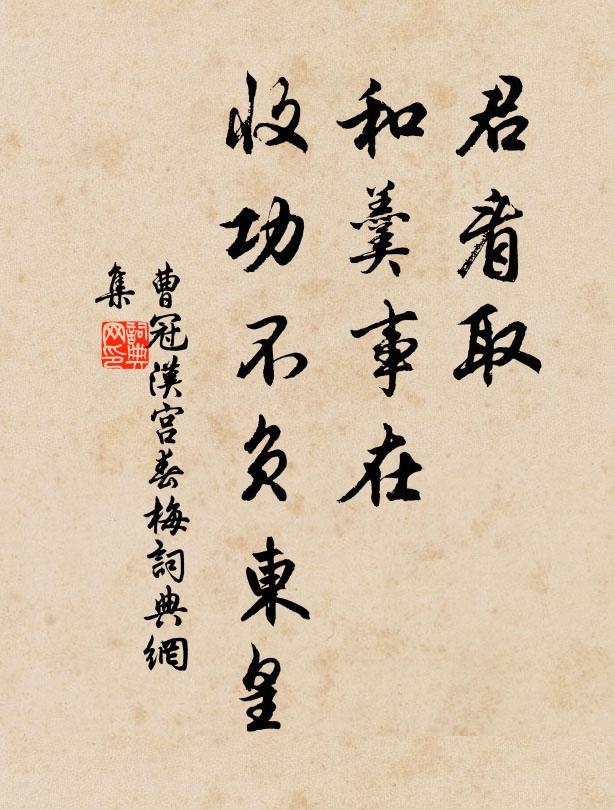 君看取
和羹事在
收功不負東皇
曹冠漢宮春梅詞典網
集
詞典
网印